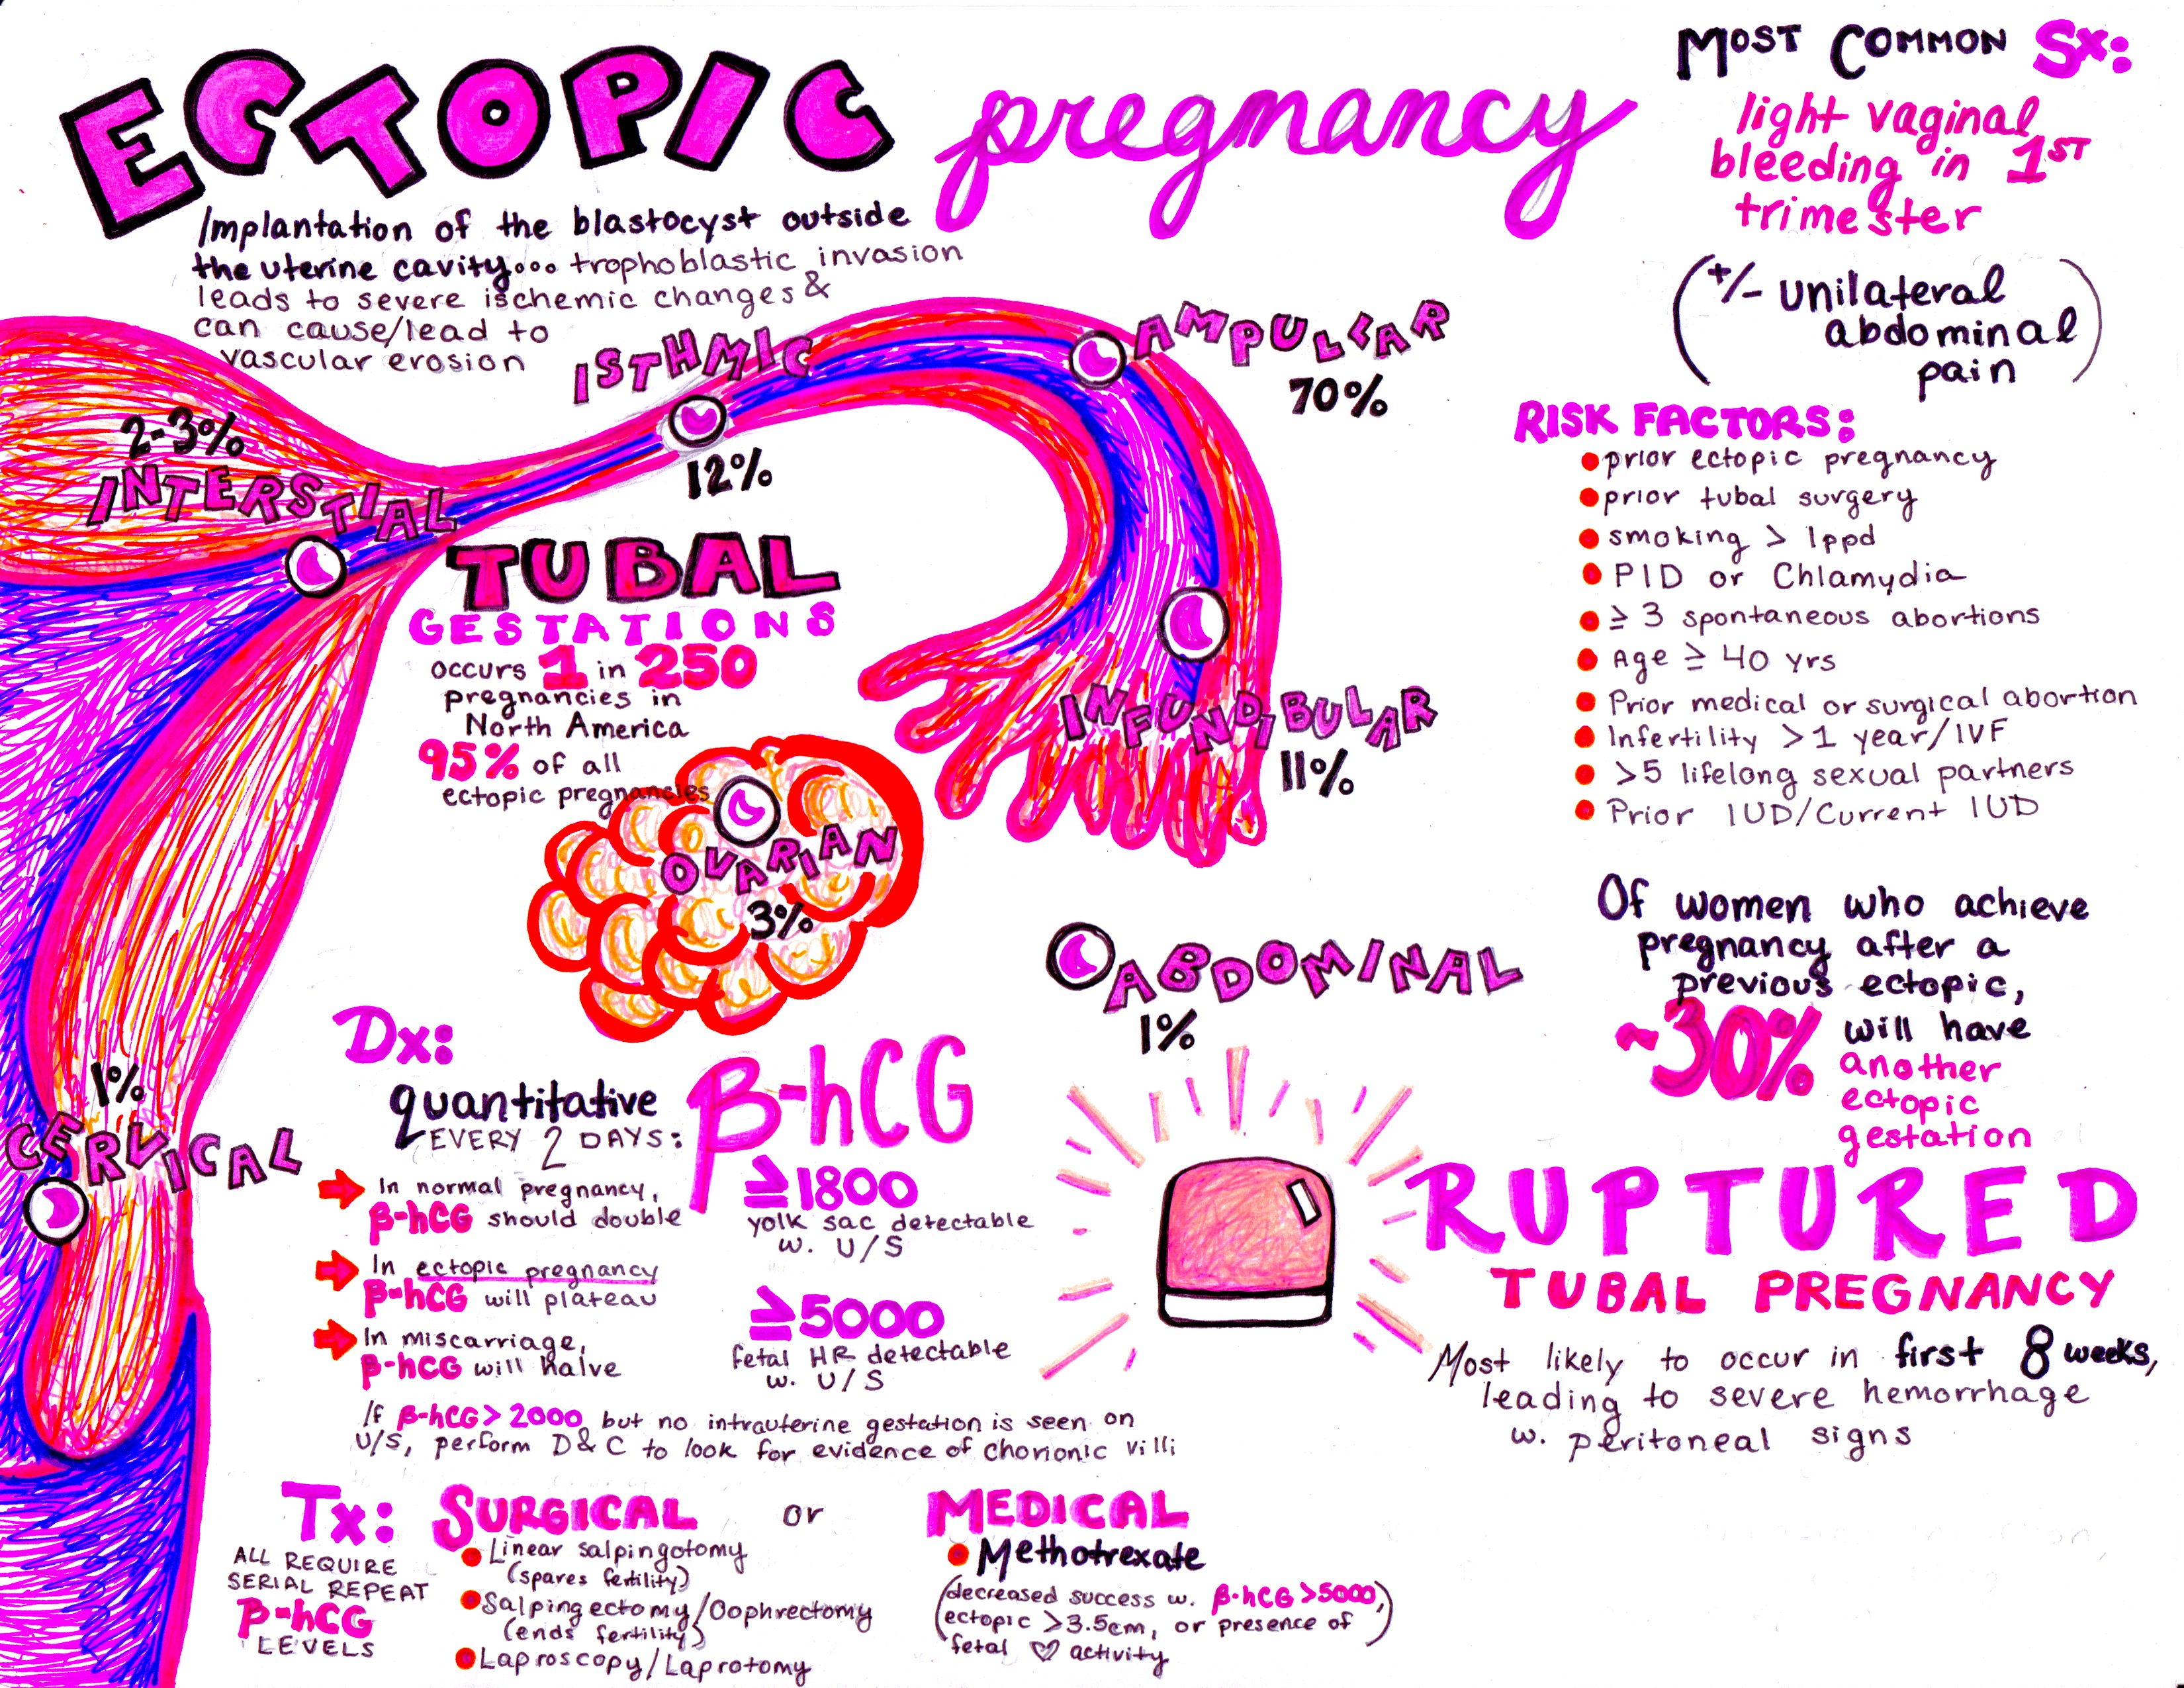 ECTOPIC pregnancy
Implantation of the blastocyst outside
the uterine cavity... trophoblastic invasion
leads to severe ischemic changes &
can cause/lead to
vascular erosion
MOST COMMON Sx:
light vaginal
bleeding in 1ST
trimester
(+/- unilateral
abdominal
pain)
ISTHMIC
12%
AMPULLAR
70%
2-3%
INTERSTIAL
TUBAL
GESTATIONS
occurs 1 in 250
pregnancies in
North America
95% of all
ectopic pregnancies
INFUNDIBULAR
11%
OVARIAN
3%
ABDOMINAL
1%
1%
CERVICAL
RISK FACTORS:
prior ectopic pregnancy
prior tubal surgery
smoking > 1ppd
PID or Chlamydia
≥ 3 spontaneous abortions
Age ≥ 40 yrs
Prior medical or surgical abortion
Infertility >1 year/IVF
>5 lifelong sexual partners
Prior IUD/Current IUD
Of women who achieve
pregnancy after a
previous ectopic,
~30% will have
another
ectopic
gestation
Dx:
quantitative β-hCG
EVERY 2 DAYS:
In normal pregnancy,
β-hCG should double
In ectopic pregnancy
β-hCG will plateau
In miscarriage,
β-hCG will halve
≥1800
yolk sac detectable
w. U/S
≥5000
fetal HR detectable
w. U/S
If β-hCG > 2000 but no intrauterine gestation is seen on
U/S, perform D&C to look for evidence of chorionic villi
RUPTURED
TUBAL PREGNANCY
Most likely to occur in first 8 weeks,
leading to severe hemorrhage
w. peritoneal signs
Tx:
ALL REQUIRE
SERIAL REPEAT
β-hCG
LEVELS
SURGICAL or MEDICAL
Linear salpingotomy
(spares fertility)
Salpingectomy/Oophrectomy
(ends fertility)
Laproscopy/Laprotomy
Methotrexate
(decreased success w. β-hCG >5000,
ectopic >3.5cm, or presence of
fetal ♡ activity)